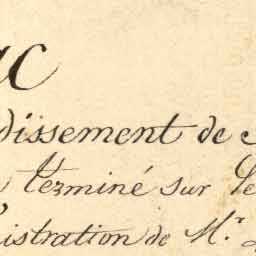 ac
dissement de
terminé sur le
istration de Mr.